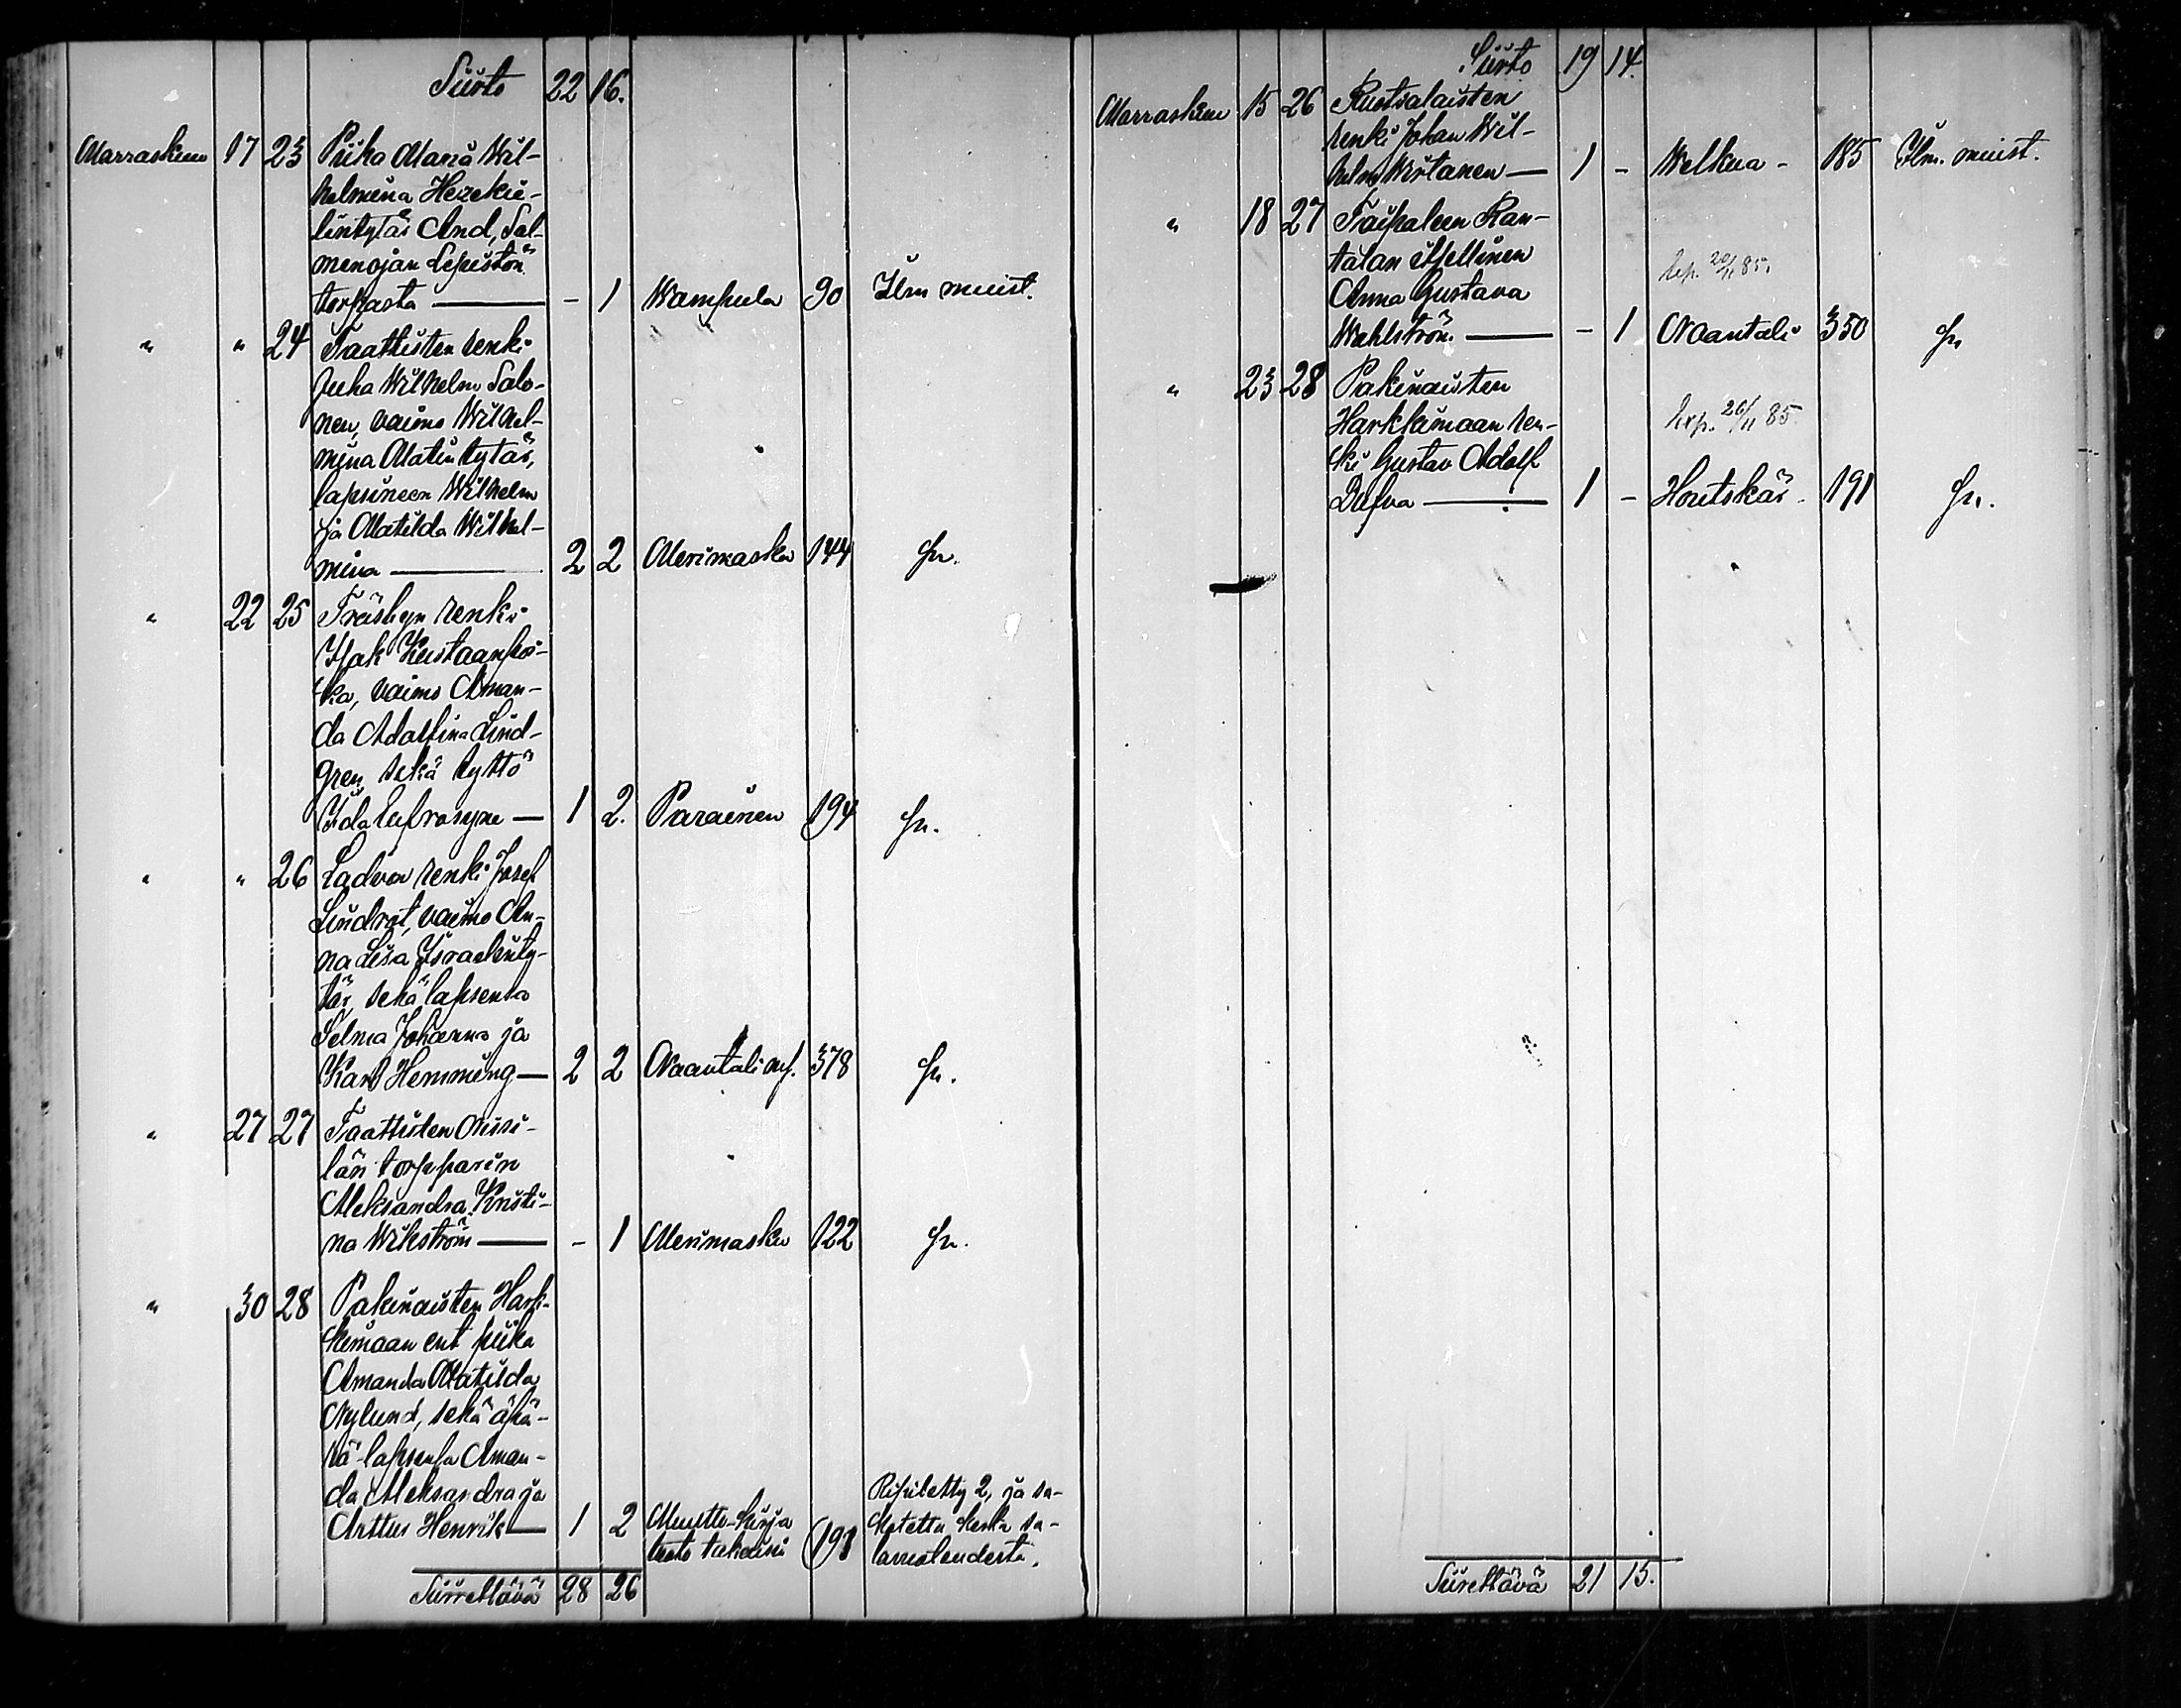 Siirto 22 16.
Marraskuu 17 23 Piika Maria Wil-
helmina Hezekie-
lintytär And, Sal-
menojan Lepistön
torpasta — - 1 Wampula 90 Ilm muist.
" " 24 Taattisten renki
Juha Wilhelm Salo-
nen, vaimo Wilhel-
mina Matintytär,
lapsineen Wilhelm
ja Matilda Wilhel-
mina — 2 2 Merimasku 144 Sn.
" 22 25 renki
Isak Kustaanpoi-
ka, vaimo Aman-
da Adolfina Lind-
gren, sekä tyttö
Ida Eufrosyne — 1 2. Parainen 194 Sn.
" " 26 Ladvon renki Josef
Lindrot, vaimo An-
na Lisa Israelinty-
tär, sekä lapsensa
Selma Johanna ja
Karl Hemming — 2 2 Naantali 378 Sn.
" 27 27 Taattisten Missi-
län torpparin
Aleksandra Kristi-
na Wikström — - 1 Merimasku 122 Sn.
" 30 28 Pakinaisten Hark-
kimaan ent piika
Amanda Matilda
Nylund, sekä äpä-
rä lapsensa Aman-
da Aleksandra ja
Arttur Henrik — 1 2 Muutto-kirja 191 Ripitetty 2, ja sa-
Siirrettävä 28 26
Siirto 19 14.
Marraskuu 15 26 Ruotsalaisten
renki Johan Wil-
helm Wirtanen — 1 - Welkua - 185 Ilm. muist.
" 18 27 Taipaleen Ran-
talan itsellinen
Anna Gustava 20/11 85.
Wahlström. — - 1 Naantali 350 Sn
" 23 28 Pakinaisten
Harkkimaan ren- 26/11 85.
ki Gustav Adolf
Dufva — 1 - Houtskär. 191 Sn.
Siirettävä 21 15.